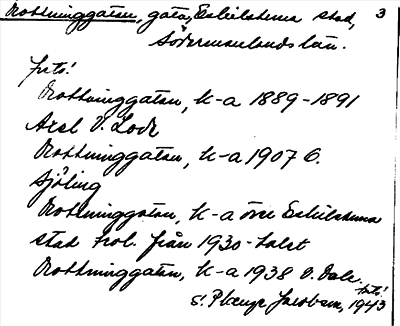 Drottninggatan, gata, Eskilstuna stad, 3
Södermanlands län.
foto:
Drottninggatan, k-a 1889-1891
Axel V. Lode
Drottninggatan, k-a 1907 G.
Sjöling
Drottninggatan, k-a över Eskilstuna
stad rol. från 1930-talet
Drottninggatan, k-a 1938 O. Dahl.
Jacobson, foto: 1943